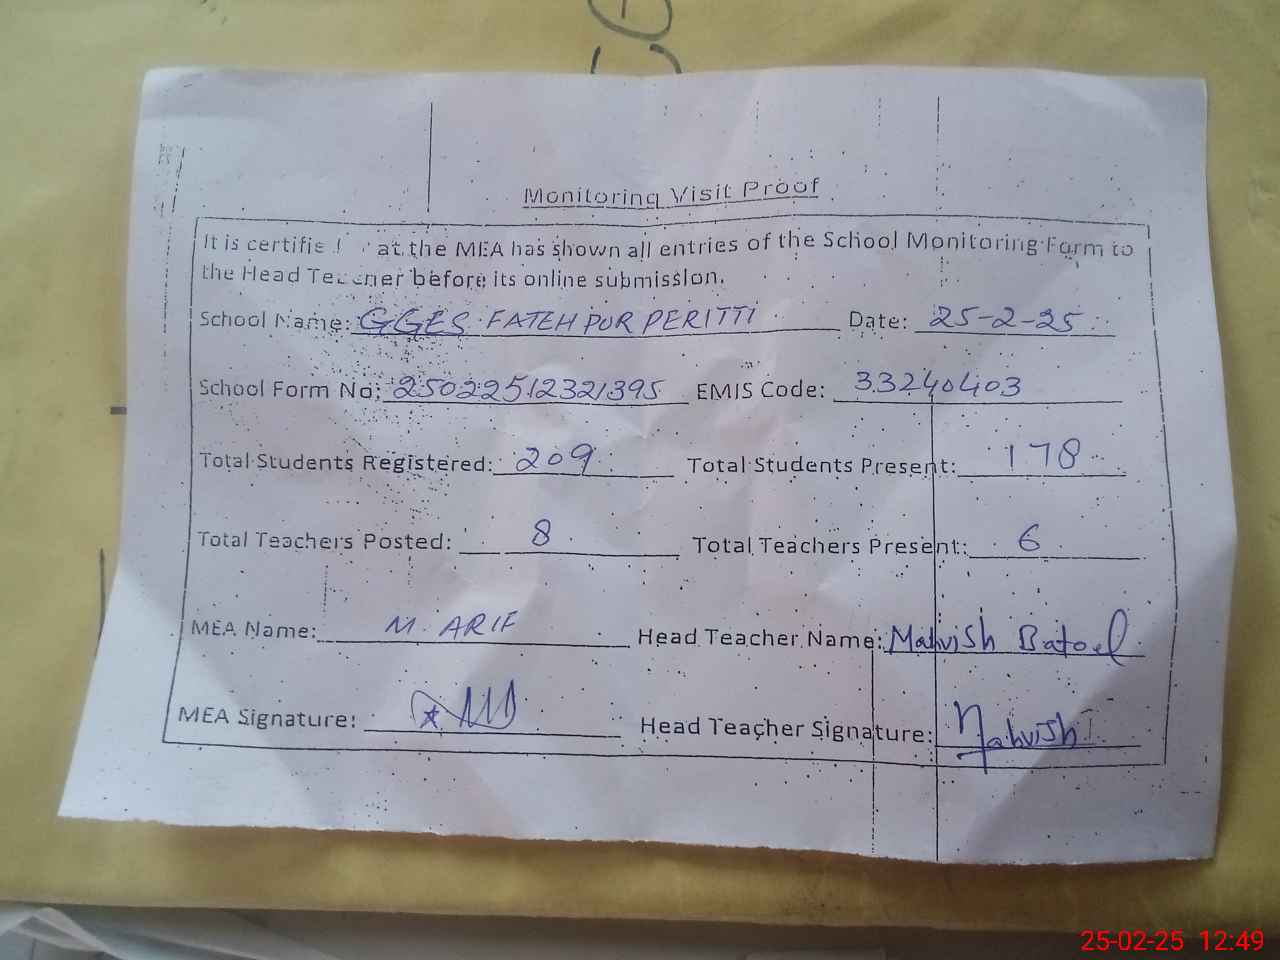 Monitoring Visit Proof
It is certifie at the MEA has shown all entries of the School Monitoring Form to
the Head Teacher before its online submission.
School Name: GGES FATEHPUR PERITTI Date: 25-2-25
School Form No: 25022512321395 EMIS Code: 33240403
Total Students Registered: 209 Total Students Present: 178
Total Teachers Posted: 8 Total Teachers Present: 6
MEA Name: M. ARIF Head Teacher Name: Mahvish Batool
MEA Signature: Head Teacher Signature: Mahvish
25-02-25 12:49